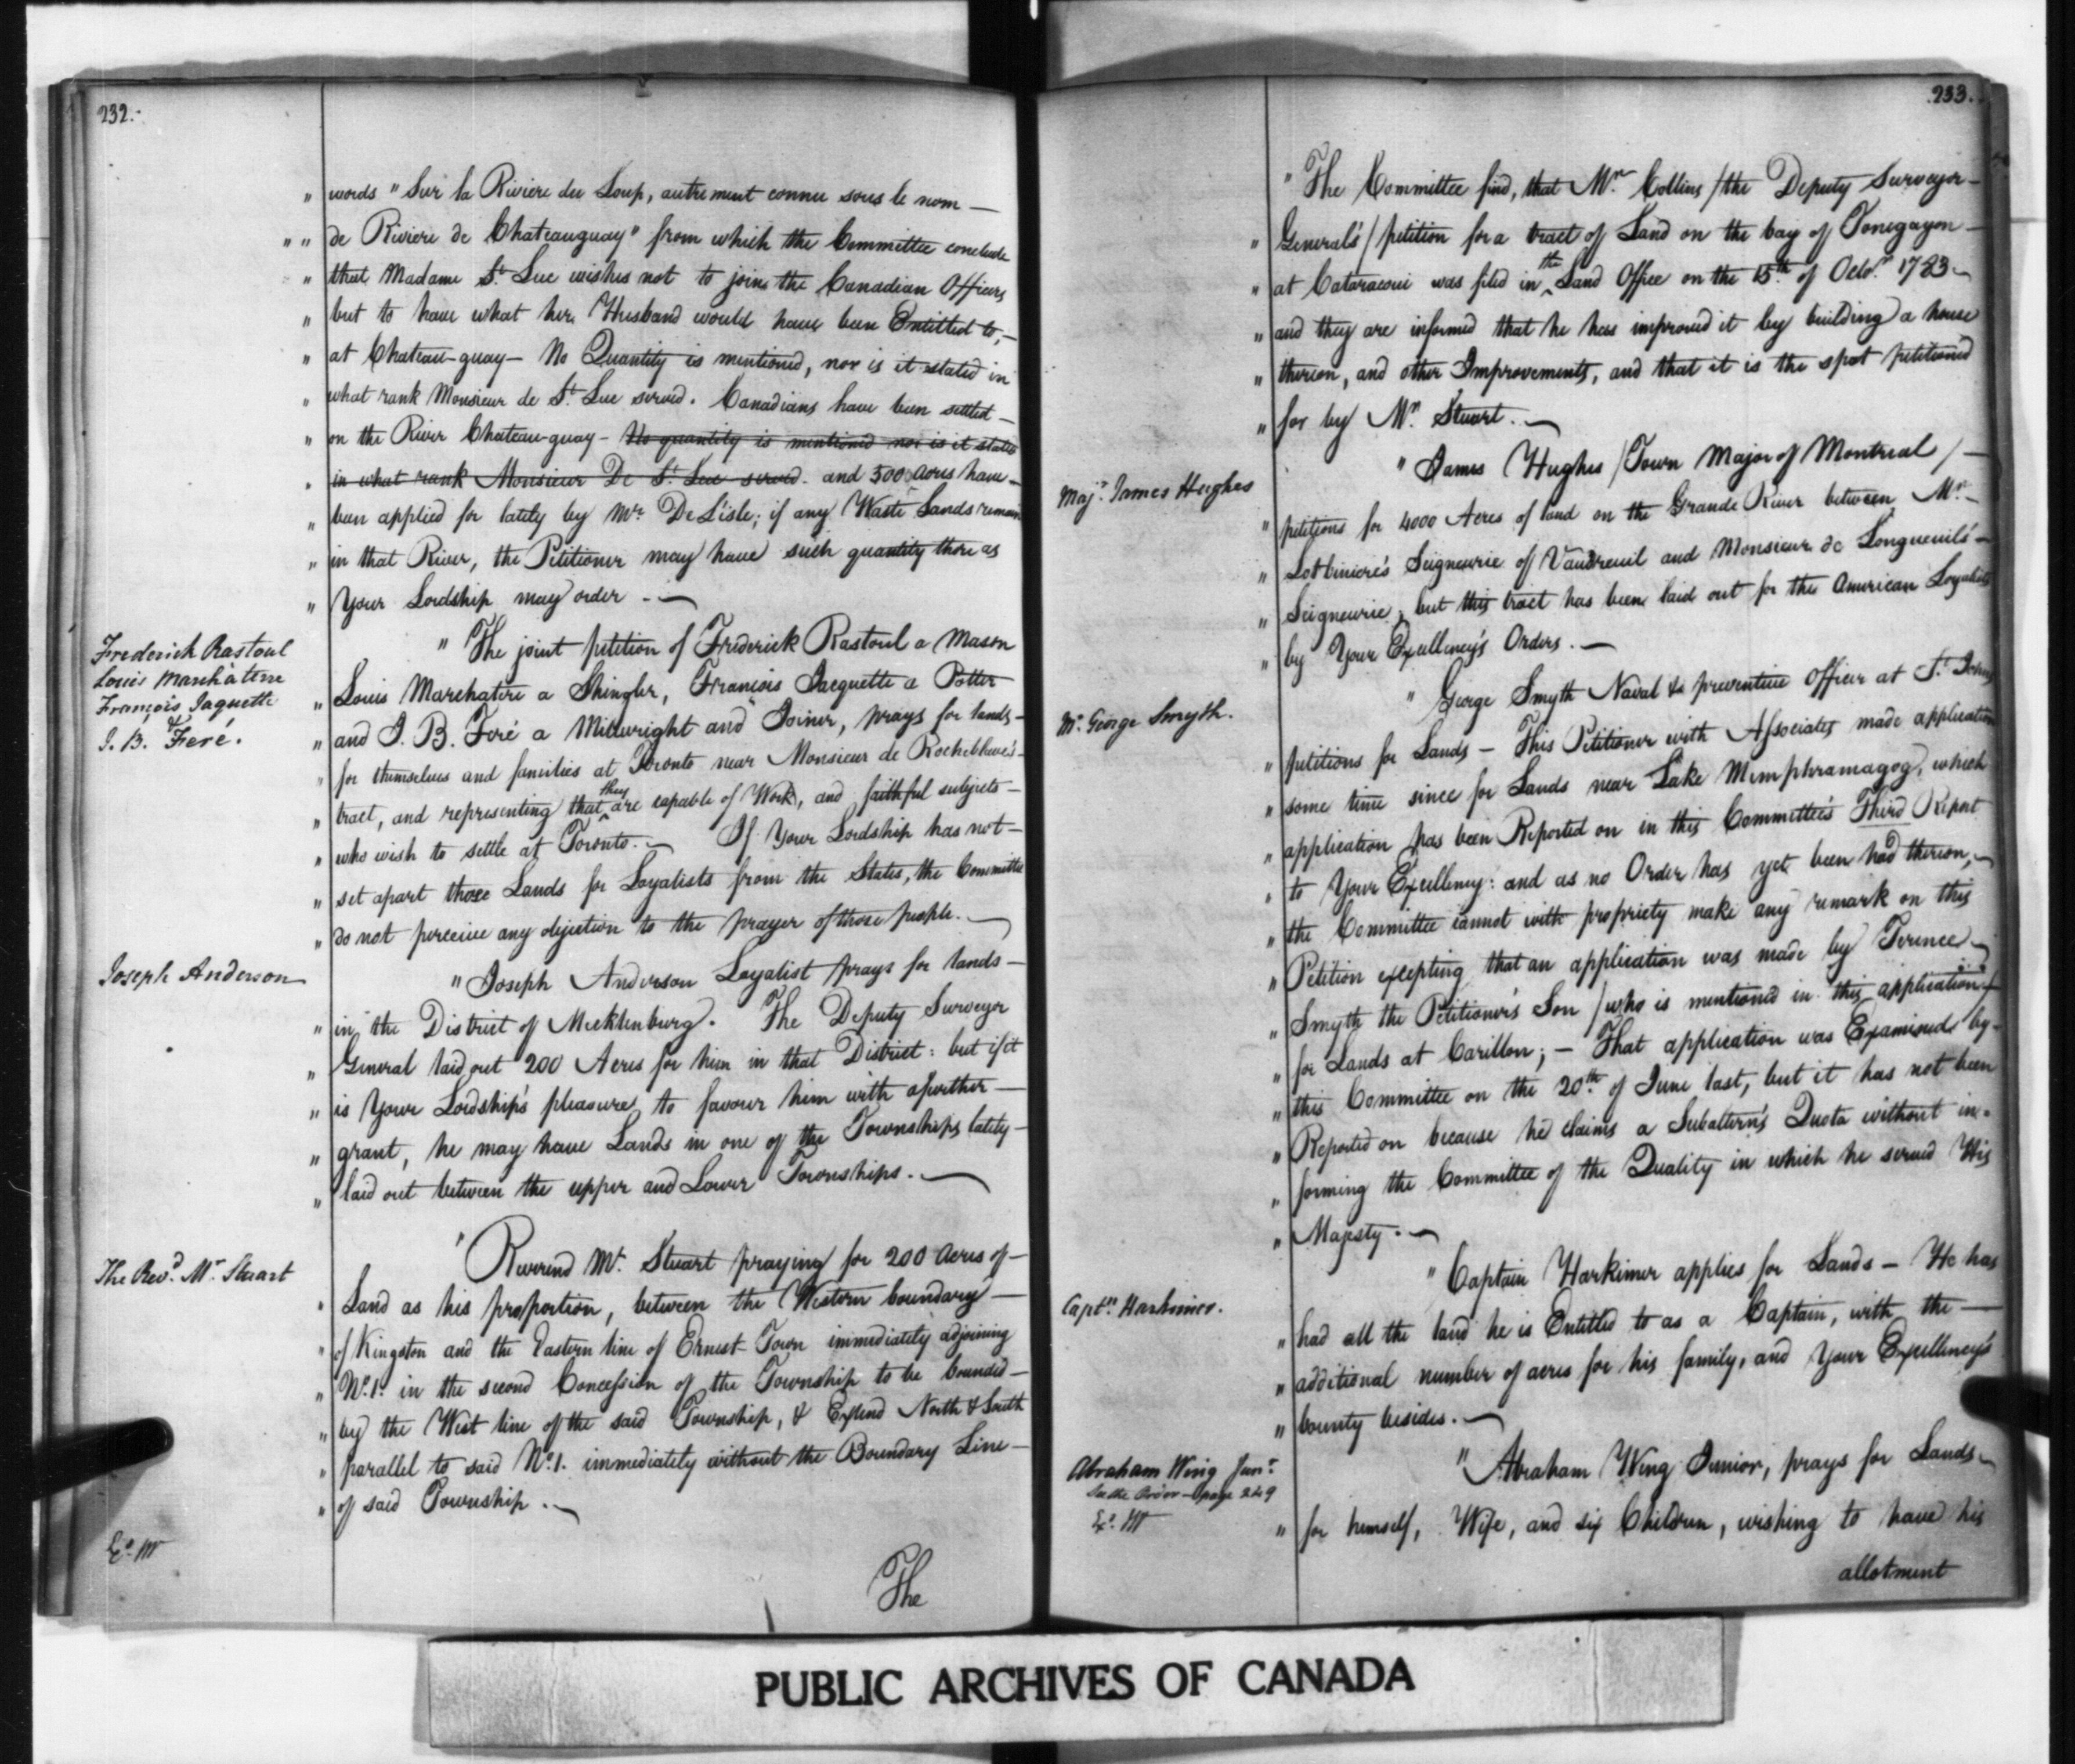 232.-
" words " Sur la Riviere du Loup, autrement connu sous le nom —
" " de Riviere de Chateauguay" from which the Committee conclude
" that Madame St. Luc wishes not to join the Canadian Officers
" but to have what her Husband would have been Entitled to, —
" at Chateau-guay — No Quantity is mentioned, nor is it stated in
" what rank Monsieur de St. Luc served. Canadians have been settled —
" on the River Chateau-guay — No quantity is mentioned nor is it stated
" in what rank Monsieur De St. Luc served. and 500 acres have
" been applied for lately by Mr. De Lisle; if any Waste Lands remain
" in that River, the Petitioner may have such quantity there as
" Your Lordship may order . —
Frederick Rastoul
Louis Marchàterre
François Jaquette
&
J. B. Feré.
" The joint petition of Frederick Rastoul a Mason
" Louis Marchatere a Shingler, Francois Jacquette a Potter
" and J. B. Feré a Millwright and Joiner, prays for lands —
" for themselves and families at Toronto near Monsieur de Rocheblave's —
" tract, and representing that they are capable of Work, and faithful subjects —
" who wish to settle at Toronto. — If Your Lordship has not —
" set apart those Lands for Loyalists from the States, the Committee
" do not perceive any objection to the prayer of those people. —
Joseph Anderson
" Joseph Anderson Loyalist prays for lands —
" in the District of Mecklenburg. The Deputy Surveyor
" General laid out 200 Acres for him in that District: but if it
" is Your Lordship's pleasure to favour him with a further —
" grant, he may have Lands in one of the Townships lately —
" laid out between the upper and Lower Townships. —
The Revd. Mr. Stuart
" Reverend Mr. Stuart praying for 200 Acres of —
" Land as his proportion, between the Western boundary —
" of Kingston and the Eastern line of Ernest Town immediately adjoining
" No. 1. in the second Concession of the Township to be bounded —
" by the West line of the said Township, & Extend North & South
" parallel to said No. 1. immediately without the Boundary Line —
" of said Township. —
Ex. M
The
233.
" The Committee find, that Mr. Collins / the Deputy Surveyor —
" General's / petition for a tract of Land on the bay of Tonegayon —
" at Cataracoui was filed in the Land Office on the 15th. of Octor. 1783 —
" and they are informed that he has improved it by building a house
" thereon, and other Improvements, and that it is the spot petitioned
" for by Mr. Stuart. —
Majr. James Hughes
" James Hughes / Town Major of Montreal / —
" petitions for 4000 Acres of land on the Grande River between Mr. —
" Lotbiniere's Seigneurie of Vaudreuil and Monsieur de Longueuil's —
" Seigneurie, but this tract has been laid out for the American Loyalists
" by Your Excellency's Orders. —
Mr. George Smyth.
" George Smyth Naval & preventive Officer at St. Johns
" petitions for Lands — This Petitioner with Associates made application
" some time since for Lands near Lake Memphramagog, which
" application has been Reported on in this Committee's Third Report
" to Your Excellency: and as no Order has yet been had thereon, —
" the Committee cannot with propriety make any remark on this
" Petition excepting that an application was made by Terence —
" Smyth the Petitioner's Son / who is mentioned in this application /
" for Lands at Carillon; — That application was Examined by —
" this Committee on the 20th. of June last, but it has not been
" Reported on because he claims a Subaltern's Quota without in=
" forming the Committee of the Quality in which he served His
" Majesty. —
Captn. Harkimer.
" Captain Harkimer applies for Lands — He has
" had all the land he is Entitled to as a Captain, with the —
" additional number of acres for his family, and Your Excellency's
" bounty besides. —
Abraham Wing Junr.
See the Order — page 249
Ex. M
" Abraham Wing Junior, prays for Lands —
" for himself, Wife, and six Children, wishing to have his
allotment
PUBLIC ARCHIVES OF CANADA